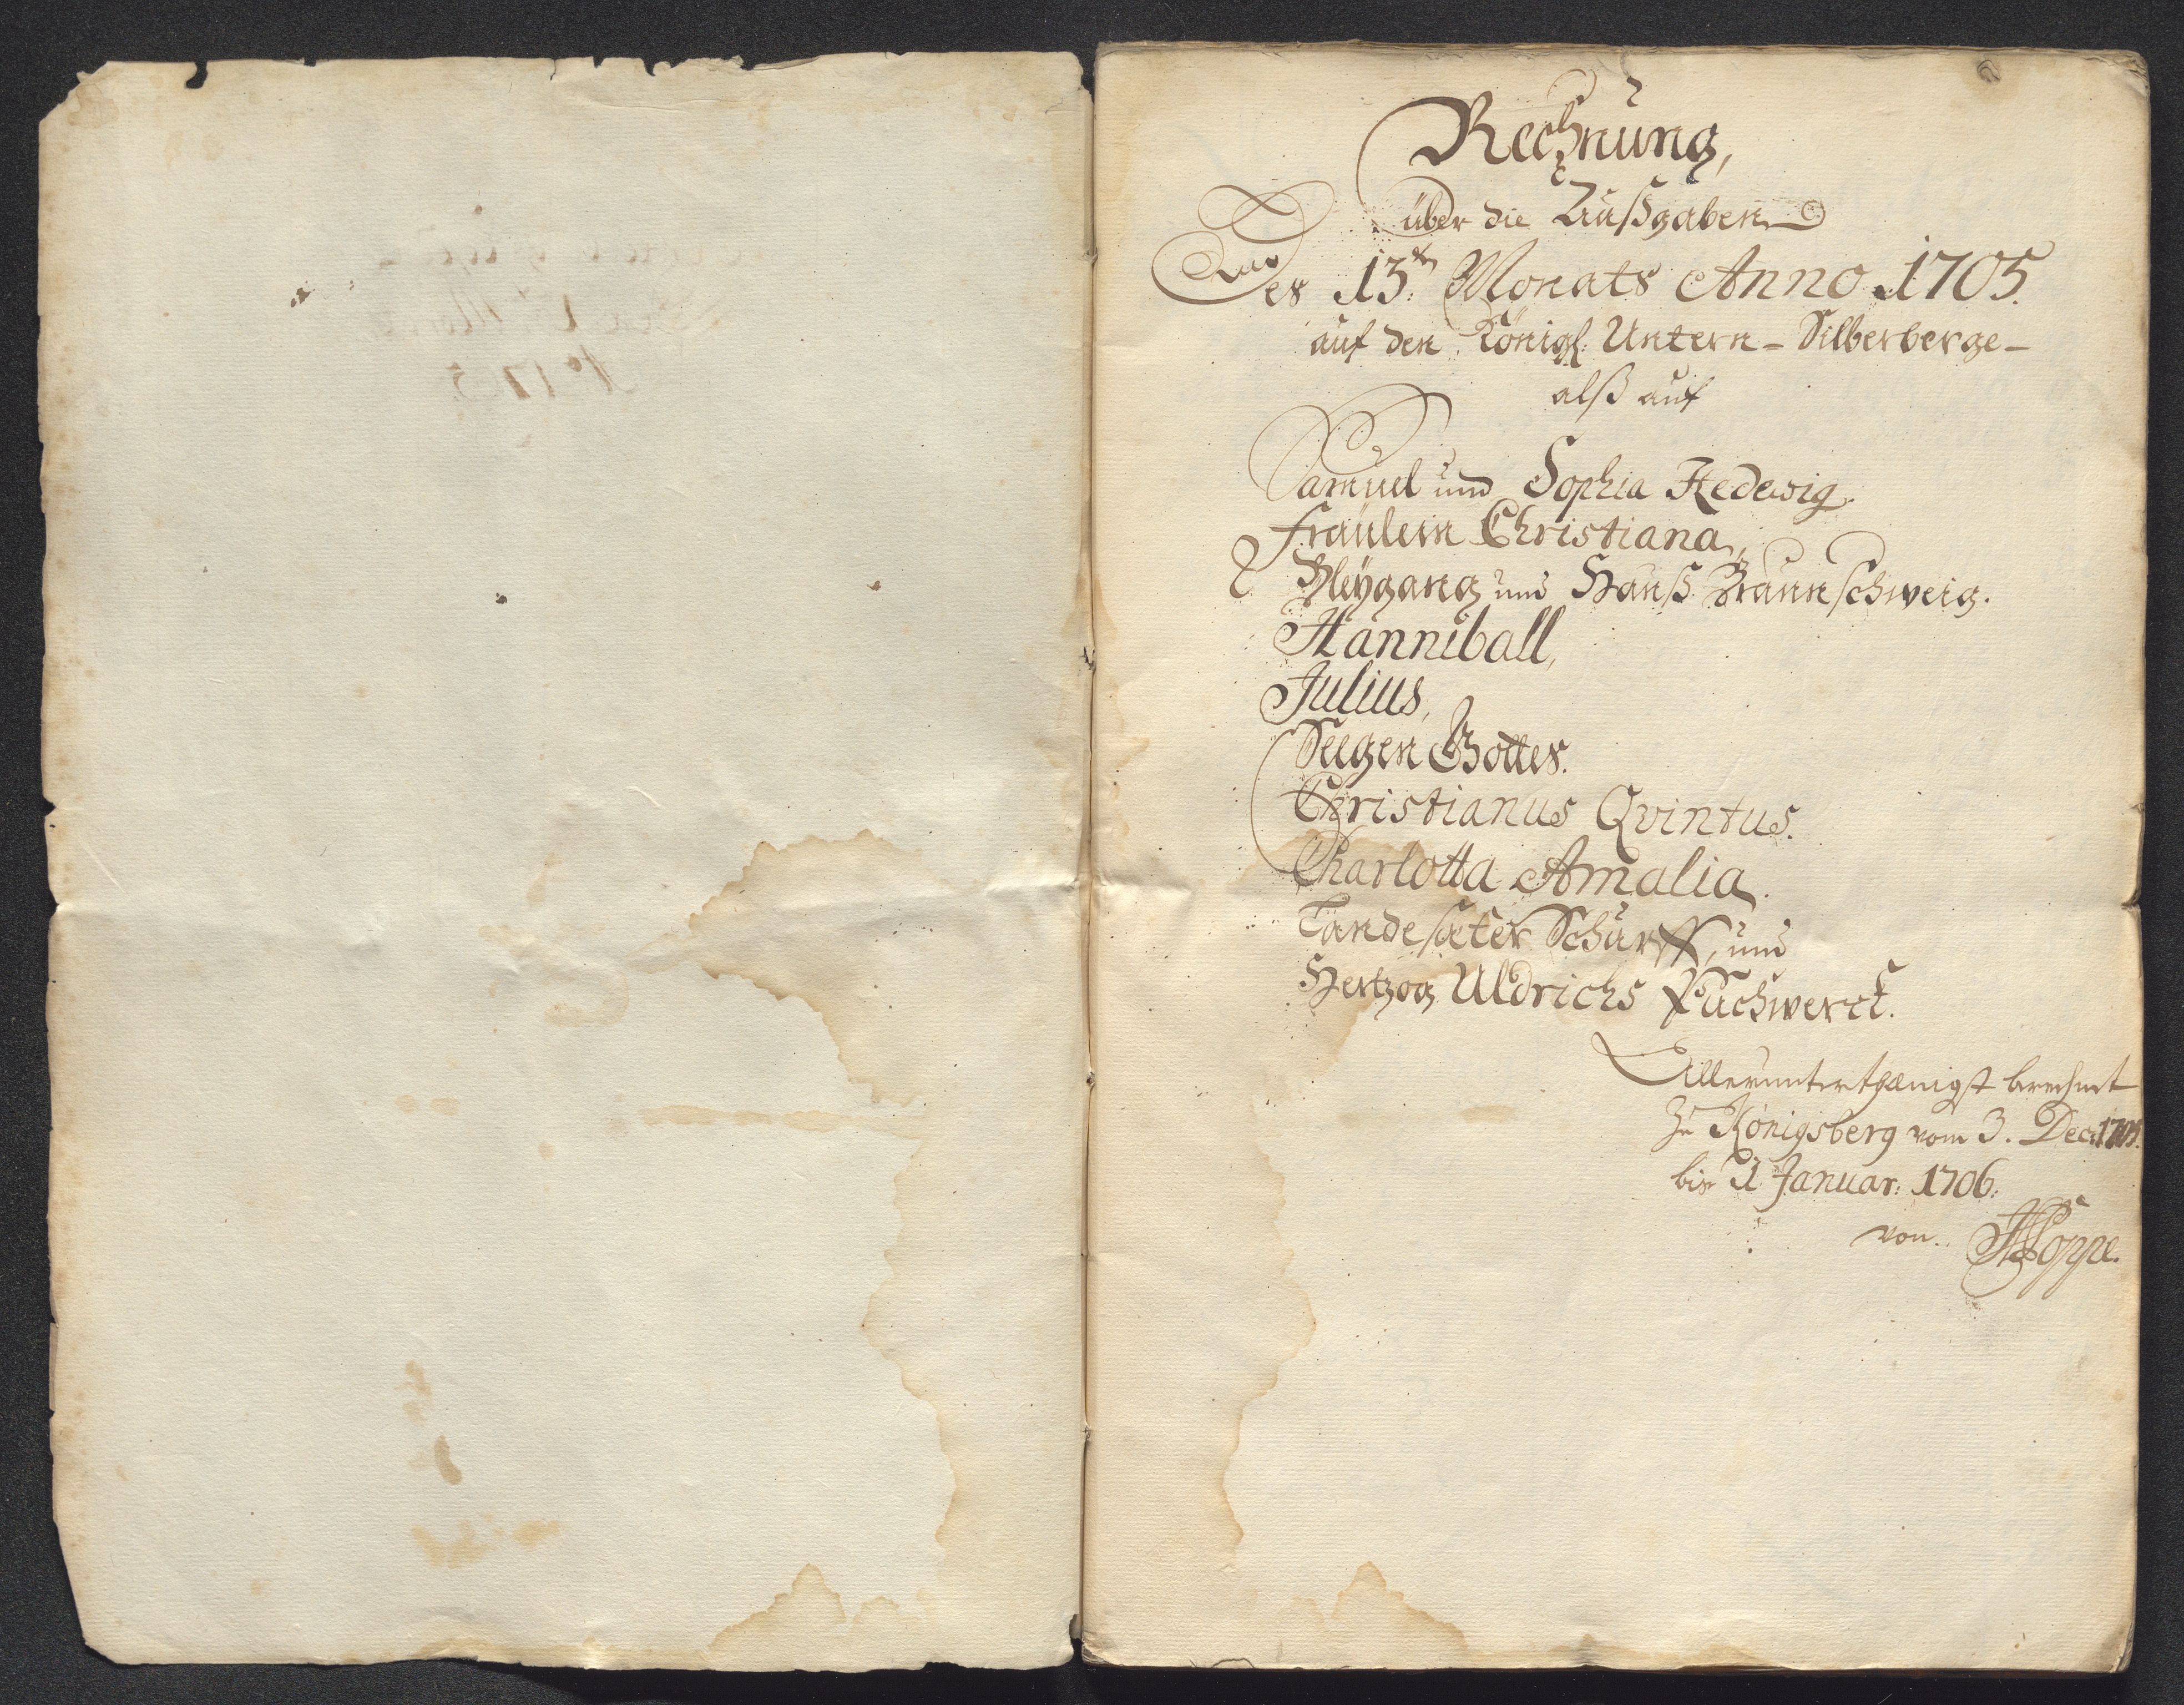 Rechnung,
über die Außgaben
Des 13.ten Monats Anno 1705.
auf den Königl: Untern-Silberberge-
alß auf
Samuel und Sophia Hedewig.
Fräulein Christiana,
Bleygang und Hauß Braunschweig.
Hanniball,
Julius,
Seegen Gottes.
Christianus Qvintus.
Charlotta Amalia.
Schurff, und
Hertzog Uldrichs Puchwerck.
Allerunterthänigst berechnet
Zu Königsberg vom 3. Dec: 1705.
bis 1 Januar: 1706.
von